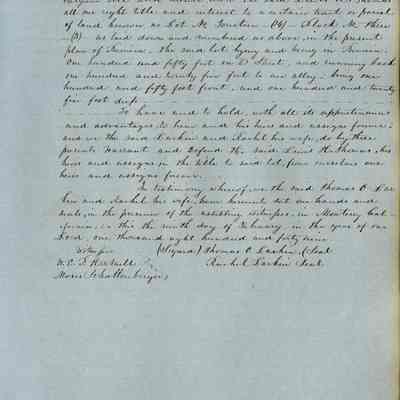 all our right title and interest to a certain tract or parcel
of land known as Lot No. fourteen (14) Block No. three
(3) as laid down and numbered as above, in the present
plan of Benicia. The said lot lying and being in Benicia.
One hundred and fifty feet on D Street, and running back
one hundred and twenty five feet to an alley being one
hundred and fifty feet front, and one hundred and twenty
five feet deep.
To have and to hold, with all its appurtenances
and advantages to him and his heirs and assigns forever:
and we the said Larkin and Rachel his wife, do by these
presents Warrant and Defend the said Lewis H. Thomas, his
heirs and assigns in the title to said lot, from ourselves our
heirs and assigns forever.
In testimony whereof, we the said Thomas O. Lar
kin and Rachel his wife, have hereunto set our hands and
seals, in the presence of the assisting witnesses, in Monterey Cal-
ifornia, on this the ninth day of February, in the year of our
Lord, one thousand eight hundred and forty nine
Witness (Signed) Thomas O. Larkin, (Seal
Rachel Larkin Seal
Moses Schallenberger